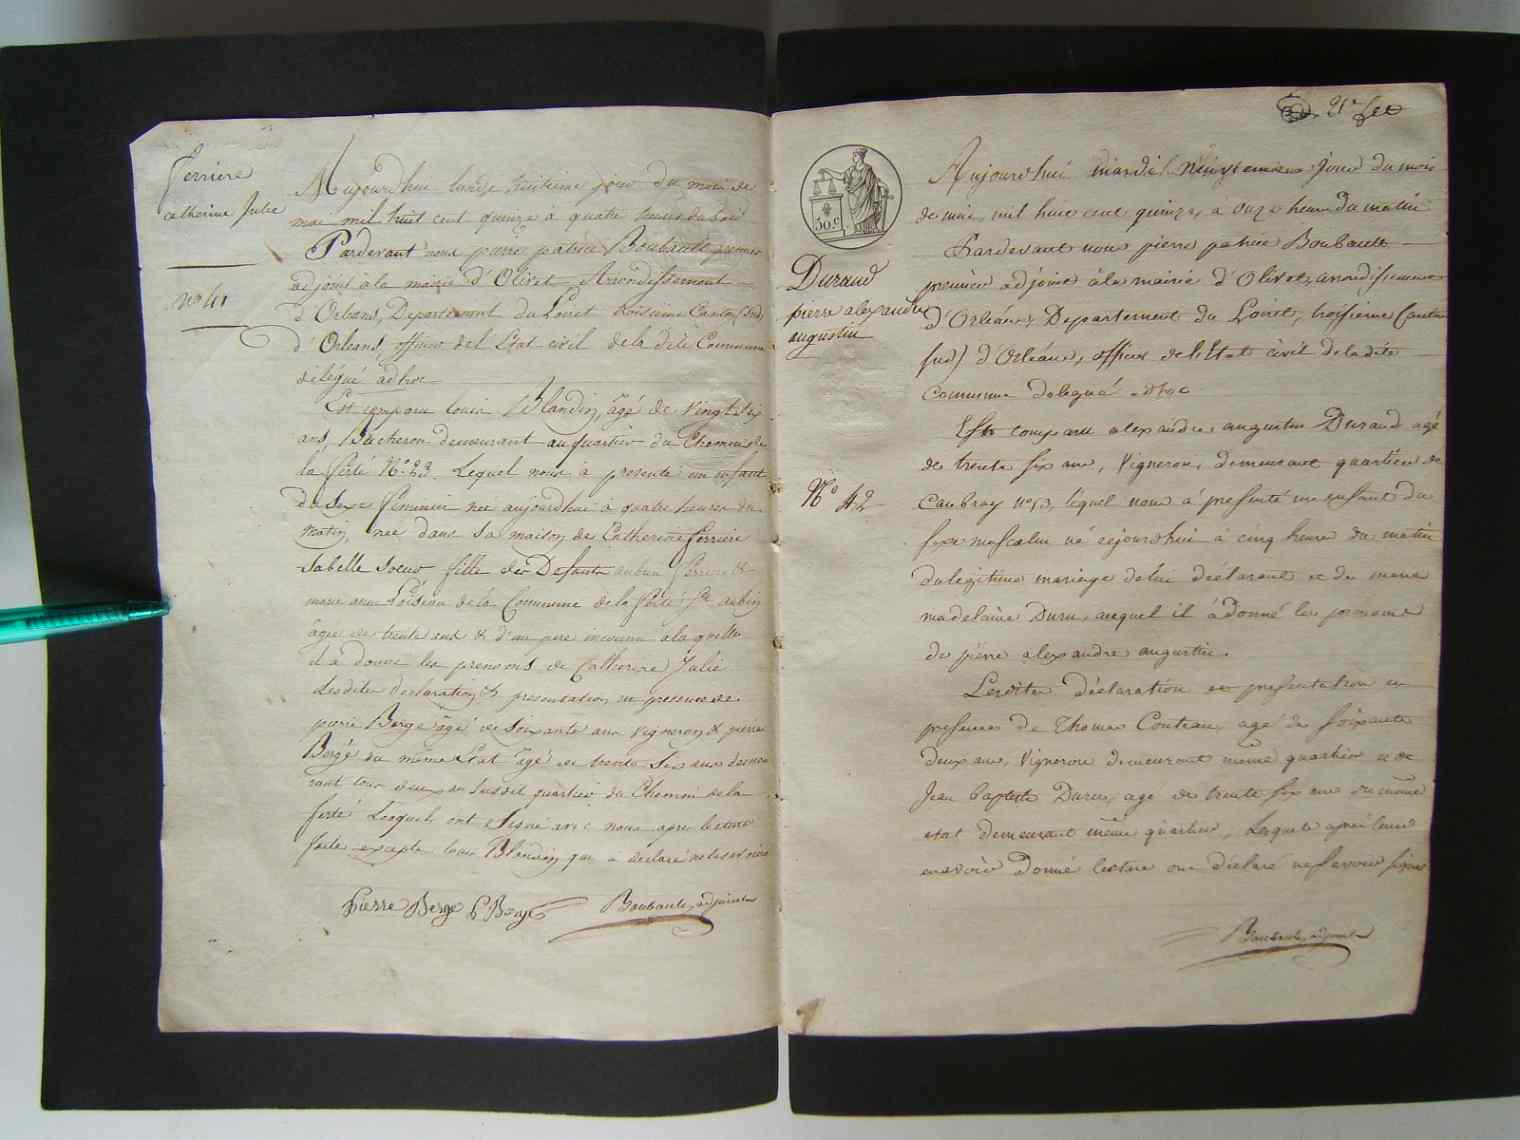 ferriere
catherine Julie
no 41
Aujourdhui lundy huitieme jour du mois de
mai mil huit cent quinze à quatre heures du soir
Pardevant nous pierre patrice Boubault premier
adjoint à la mairie d'Olivet, Arrondissement
d'Orleans, Departement du Loiret troisieme Canton (sud)
d'Orleans, officier de l'Etat civil de la dite Commune
délégué ad hoc
Est comparu louis Blandin, âgé de vingt six
ans, Bucheron demeurant au quartier du Chemin de
la ferté No. 23. Lequel nous a presenté un enfant
du Sexe feminin née aujourdhui à quatre heures du
matin, née dans sa maison, de Catherine ferriere
sa belle Soeur fille des Defunts aubin ferriere &
marie anne Loiseau de la Commune de la ferté St. aubin
âgée de trente ans & d'un pere inconnu a la quelle
il a donné les prenoms de Catherine Julie
Lesdites declaration & presentation en presence de
pierre Bergé âgé de Soixante ans vigneron & pierre
Bergé du même Etat âgé de trente Six ans demeu
rant tous deux au Susdit quartier du Chemin de la
ferté Lesquels ont Signé avec nous apres lecture
faite excepté louis Blandin qui a déclaré ne le savoir
Pierre Berge P Bergé Boubault, adjoint
21e
30 c
Durand
pierre alexandre
augustin
No 42
Aujourdhui mardi Neuvieme jour du mois
de mai, mil huit cent quinze, à onze heure du matin
Pardevant nous pierre patrice Boubault
premier adjoint à la mairie d'Olivet, arrondissement
d'Orléans, Departement du Loiret, troisieme Canton
(sud) d'Orléans, officier de l'Etat civil de la dite
commune delegué adhoc
Est comparu alexandre augustin Durand agé
de trente six ans, Vigneron, demeurant quartier de
Caubray no 13, lequel nous a presenté un enfant du
sexe masculin né cejourdhui à cinq heure du matin
du légitime mariage de lui déclarant et de marie
madelaine Duru, auquel il a donné les prenoms
de pierre alexandre augustin.
Lesdites déclaration et presentation en
presence de Thomas Couteau, agé de soixante
deux ans, Vigneron demeurant même quartier et de
Jean baptiste Duru, agé de trente six ans du même
etat demeurant même quartier, Lesquels après leur
en avoir donné lecture ont déclaré ne savoir signer
Boubault, adjoint